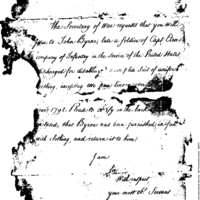 The Secretary of War requests that you will
you to John Byrne, late a soldier of Capt
Company of Infantry in the Service of the United States
discharged for disability a complete suit of
clothing, excepting one pair
1792. Please to certify in the
that Byrne has been furnished in full
with clothing, and return it to him
I am
With respect
your most ob. Servant